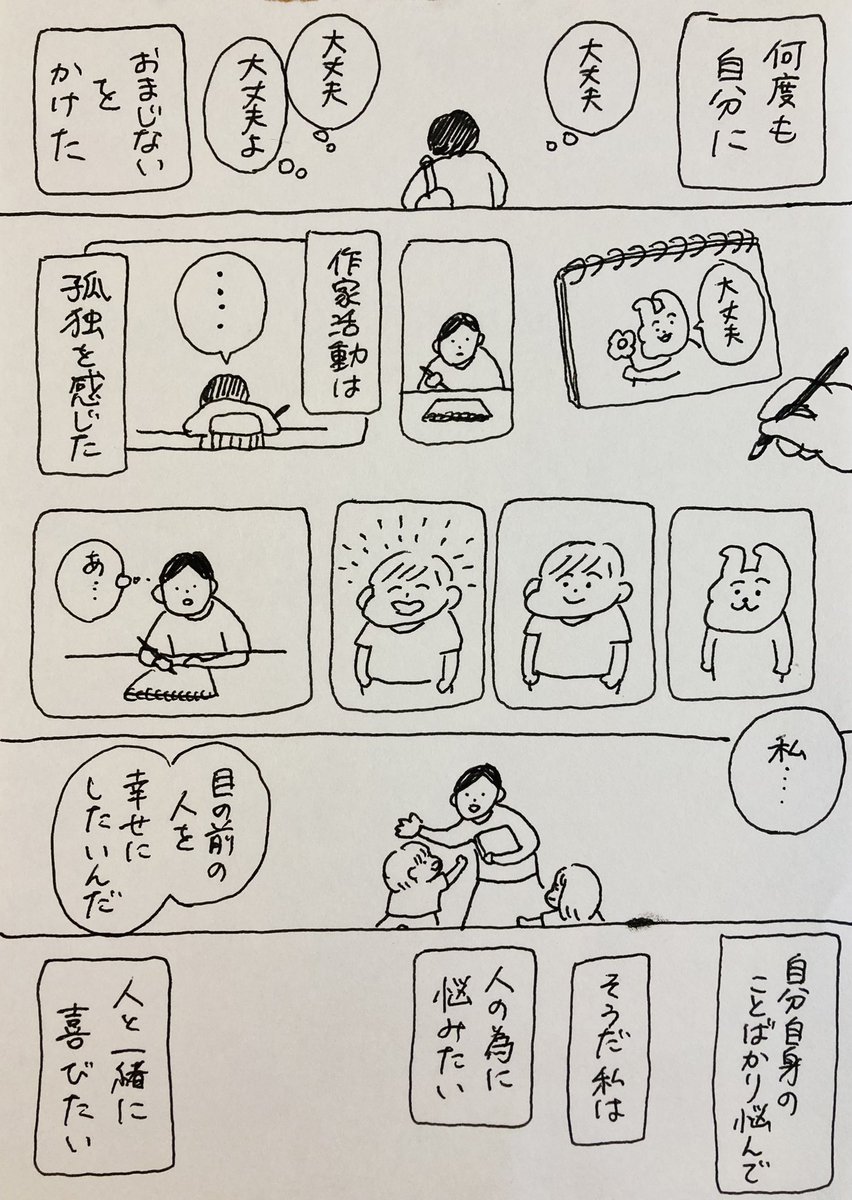 何度も
自分に
大丈夫
大丈夫
大丈夫よ
おまじない
を
かけた
大丈夫
作家活動は
・・・・
孤独を感じた
あ…
私……
目の前の
人を
幸せに
したいんだ
自分自身の
ことばかり悩んで
そうだ私は
人の為に
悩みたい
人と一緒に
喜びたい